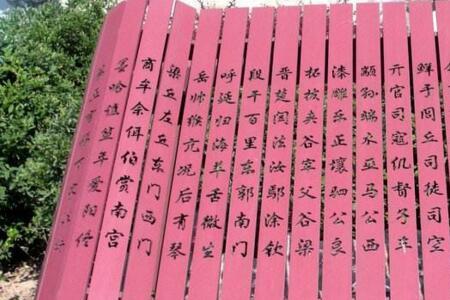 鲜于闾丘司徒司空
亓官司寇仉督子车
颛孙端木巫马公西
漆雕乐正壤驷公良
拓拔夹谷宰父谷梁
晋楚闫法汝鄢涂钦
段干百里东郭南门
呼延归海羊舌微生
岳帅缑亢况后有琴
梁丘左丘东门西门
商牟佘佴伯赏南宫
墨哈谯笪年爱阳佟